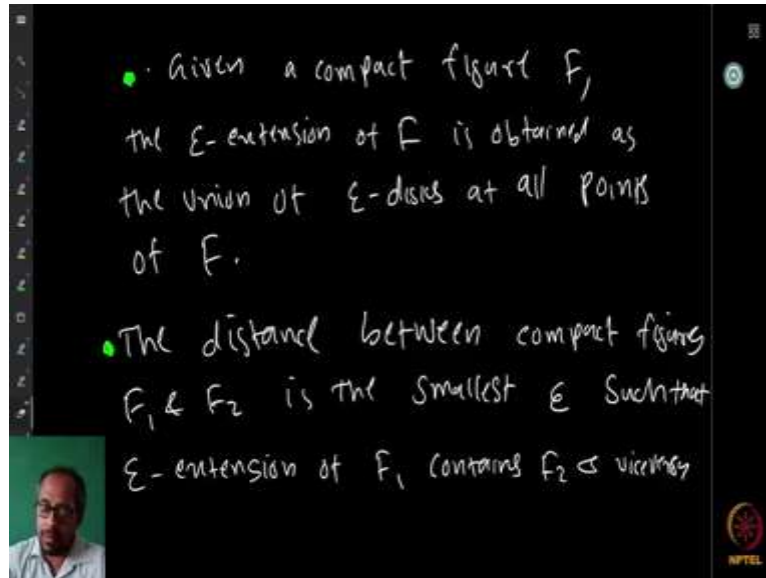 · Given a compact figure F,
the ε-extension of F is obtained as
the union of ε-disks at all points
of F.
The distance between compact figures
F₁ & F₂ is the smallest ε such that
ε-extension of F₁ contains F₂ & viceversa
NPTEL